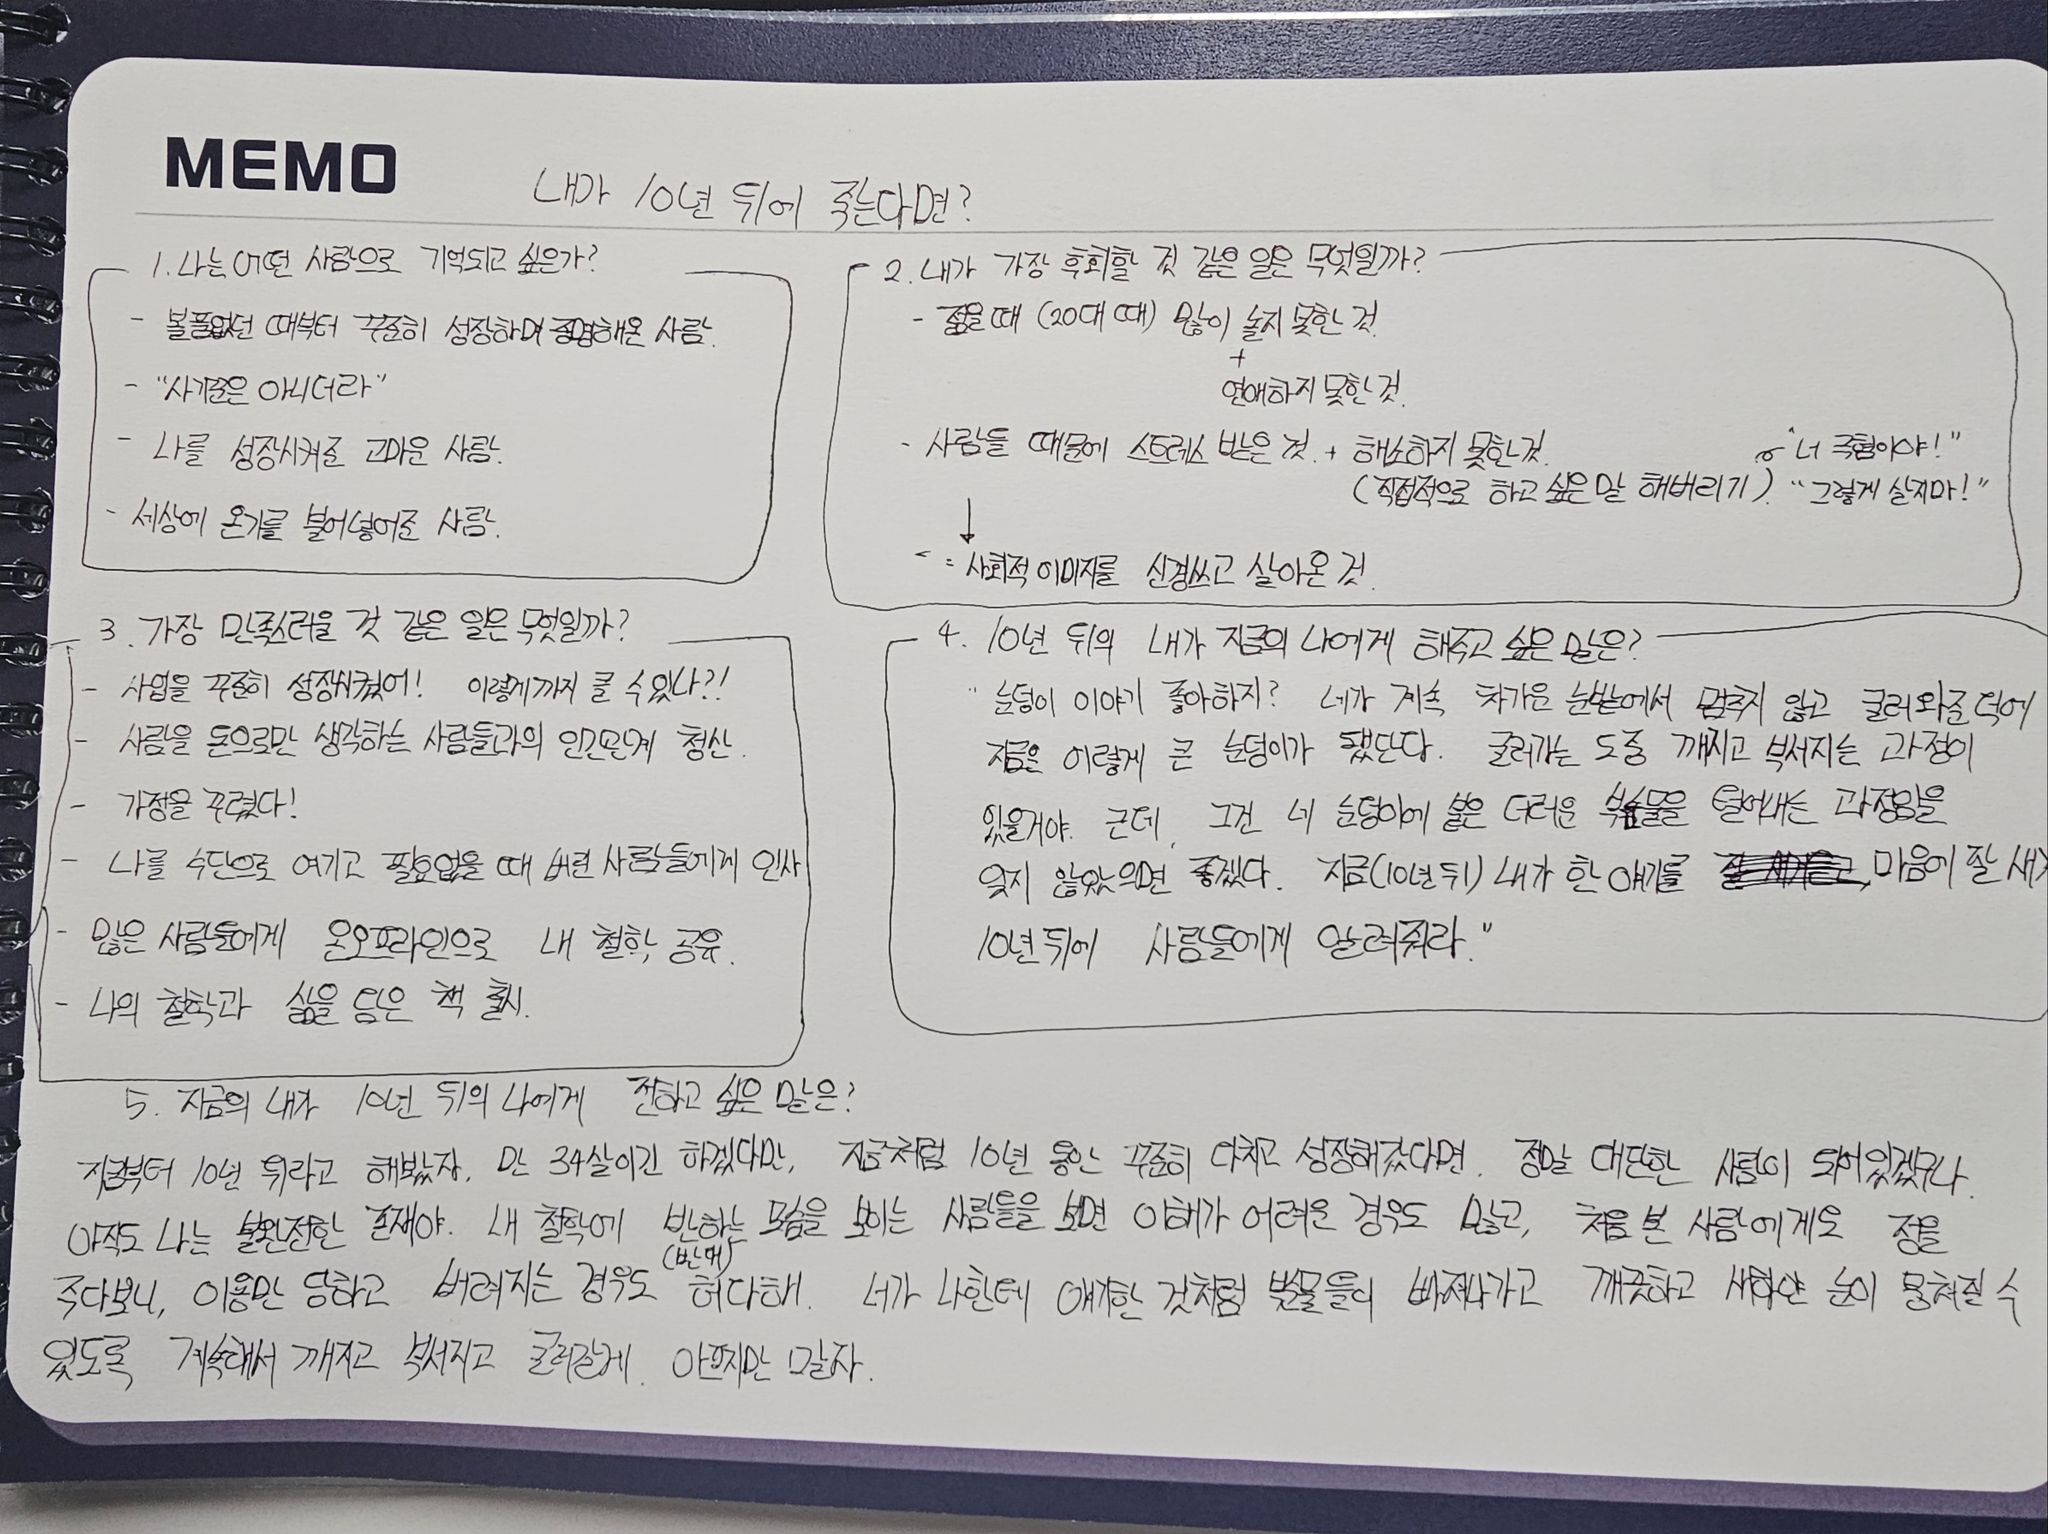 MEMO
내가 10년 뒤에 죽는다면?
1. 나는 어떤 사람으로 기억되고 싶은가?
- 볼품없던 때부터 꾸준히 성장하며 증명해온 사람.
- "사기꾼은 아니더라"
- 나를 성장시켜준 고마운 사람.
- 세상에 온기를 불어넣어준 사람.
2. 내가 가장 후회할 것 같은 일은 무엇일까?
- 젊을 때 (20대 때) 많이 놀지 못한 것.
+
연애하지 못한 것.
- 사람들 때문에 스트레스 받은 것. + 해소하지 못한 것.
(직접적으로 하고 싶은 말 해버리기)
"너 극혐이야!"
"그렇게 살지마!"
↓
= 사회적 이미지를 신경쓰고 살아온 것.
3. 가장 만족스러울 것 같은 일은 무엇일까?
- 사업을 꾸준히 성장시켰어! 이렇게까지 클 수 있나?!
- 사람을 돈으로만 생각하는 사람들과의 인간관계 청산.
- 가정을 꾸렸다!
- 나를 수단으로 여기고 필요없을 때 버린 사람들에게 인사
- 많은 사람들에게 온오프라인으로 내 철학 공유.
- 나의 철학과 삶을 담은 책 출시.
4. 10년 뒤의 내가 지금의 나에게 해주고 싶은 말은?
"눈덩이 이야기 좋아하지? 네가 계속 차가운 눈밭에서 멈추지 않고 굴러와준 덕에
지금은 이렇게 큰 눈덩이가 됐단다. 굴러가는 도중 깨지고 부서지는 과정이
있을거야. 근데, 그건 네 눈덩이에 붙은 더러운 불순물을 털어내는 과정임을
잊지 않았으면 좋겠다. 지금(10년 뒤) 내가 한 얘기를 마음에 잘
10년 뒤에 사람들에게 알려줘라."
5. 지금의 내가 10년 뒤의 나에게 전하고 싶은 말은?
지금부터 10년 뒤라고 해봤자, 만 34살이긴 하겠다만, 지금처럼 10년 동안 꾸준히 다치고 성장해갔다면, 정말 대단한 사람이 되어있겠구나.
아직도 나는 불완전한 존재야. 내 철학에 반하는 모습을 보이는 사람들을 보면 이해가 어려운 경우도 많고, 처음 본 사람에게도 정을
(반대)
주다보니, 이용만 당하고 버려지는 경우도 허다해. 네가 나한테 얘기한 것처럼 불순물들이 빠져나가고 깨끗하고 새하얀 눈이 뭉쳐질 수
있도록 계속해서 깨지고 부서지고 굴러갈게. 아프지만 말자.